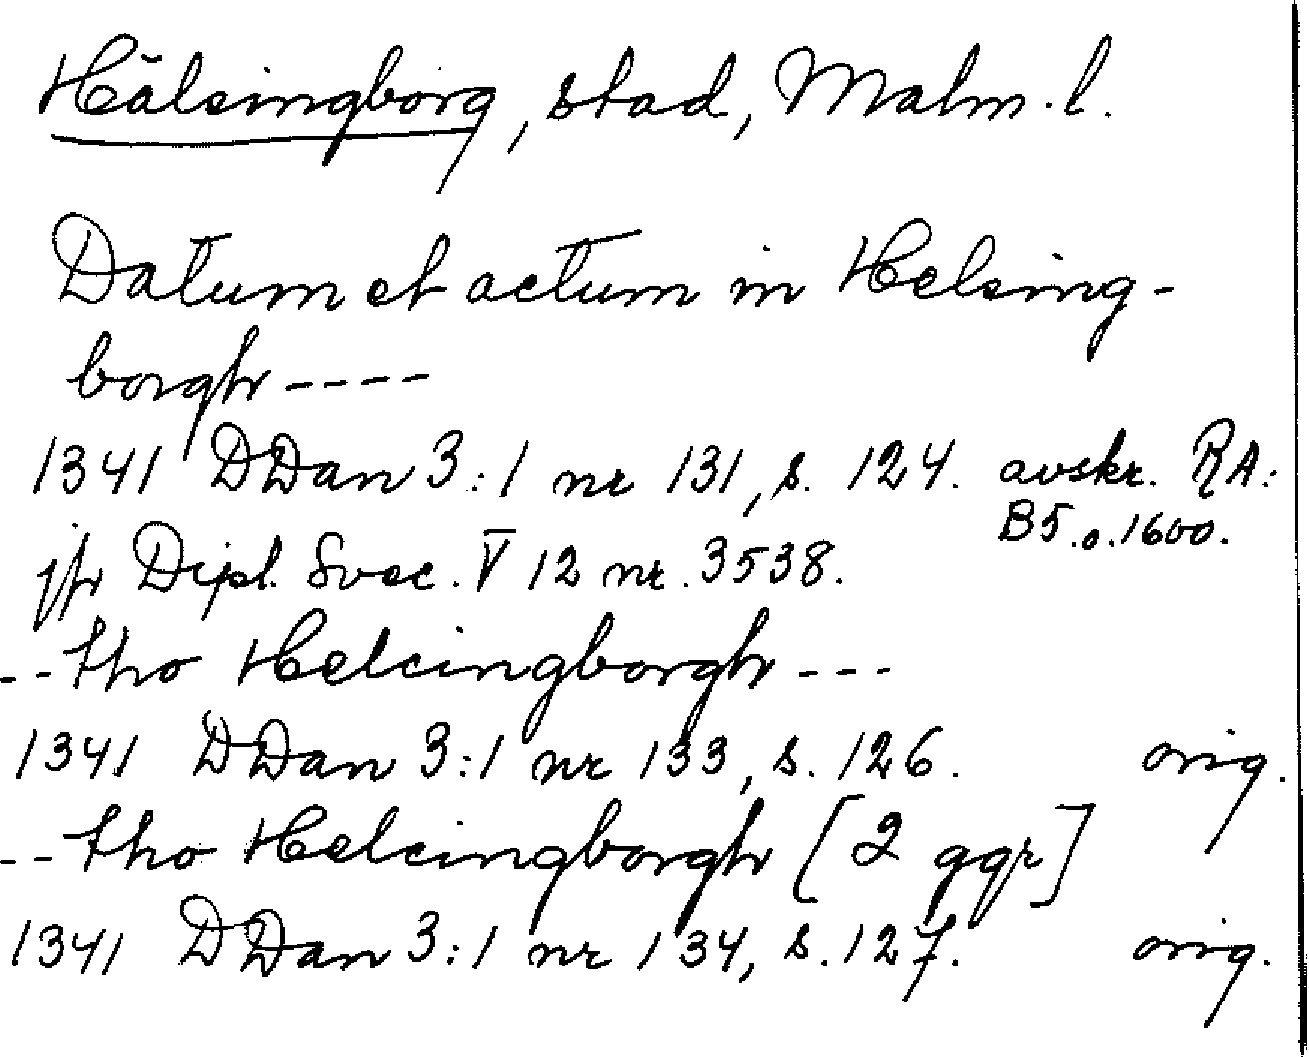 Hälsingborg, stad, Malm. l.
Datum et actum in Helsing-
borgh ----
1341 DDan 3:1 nr 131, s. 124. avskr. RA:
B5.o.1600.
jfr Dipl. Svec. V 12 nr. 3538.
-- tho Helcingborgh ---
1341 DDan 3:1 nr 133, s. 126. orig.
-- tho Helcingborgh [2 ggr]
1341 DDan 3:1 nr 134, s. 127. orig.